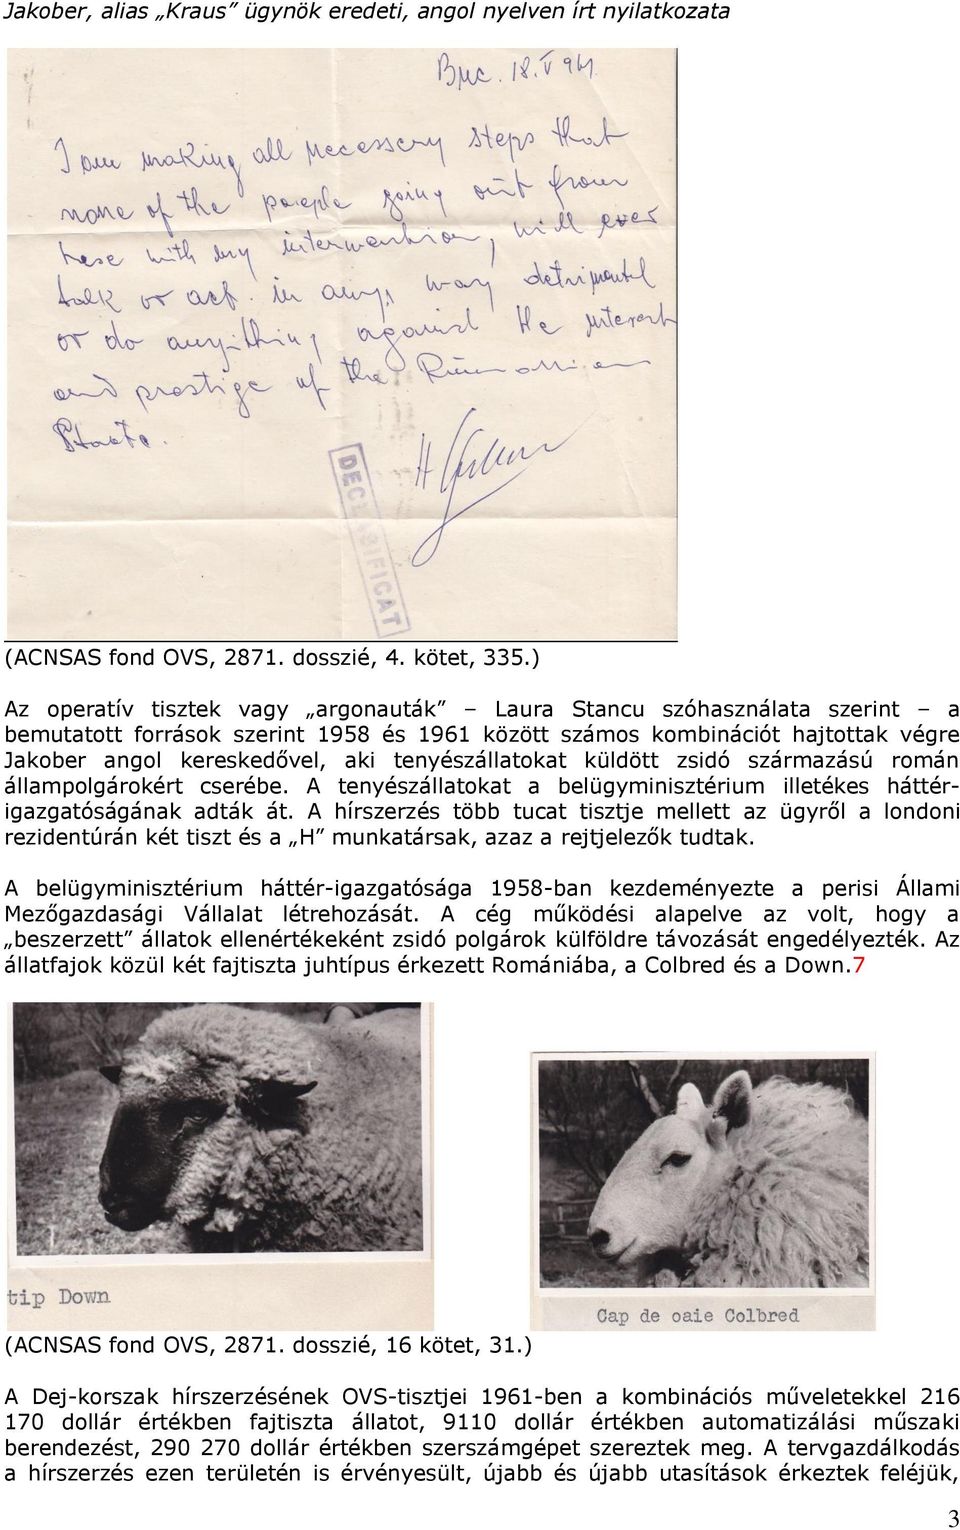 Jakober, alias „Kraus” ügynök eredeti, angol nyelven írt nyilatkozata
Buc. 18.V 961.
I am making all necessery steps that
none of the people going out from
here with my interwenhion, will ever
talk or act in any way detrimentel
or do anything against the interest
and prestige of the Rumanian
Staate.
DECLASIFICAT
(ACNSAS fond OVS, 2871. dosszié, 4. kötet, 335.)
Az operatív tisztek vagy „argonauták” – Laura Stancu szóhasználata szerint – a
bemutatott források szerint 1958 és 1961 között számos kombinációt hajtottak végre
Jakober angol kereskedővel, aki tenyészállatokat küldött zsidó származású román
állampolgárokért cserébe. A tenyészállatokat a belügyminisztérium illetékes háttér-
igazgatóságának adták át. A hírszerzés több tucat tisztje mellett az ügyről a londoni
rezidentúrán két tiszt és a „H” munkatársak, azaz a rejtjelezők tudtak.
A belügyminisztérium háttér-igazgatósága 1958-ban kezdeményezte a perisi Állami
Mezőgazdasági Vállalat létrehozását. A cég működési alapelve az volt, hogy a
„beszerzett” állatok ellenértékeként zsidó polgárok külföldre távozását engedélyezték. Az
állatfajok közül két fajtiszta juhtípus érkezett Romániába, a Colbred és a Down.7
tip Down
Cap de oaie Colbred
(ACNSAS fond OVS, 2871. dosszié, 16 kötet, 31.)
A Dej-korszak hírszerzésének OVS-tisztjei 1961-ben a kombinációs műveletekkel 216
170 dollár értékben fajtiszta állatot, 9110 dollár értékben automatizálási műszaki
berendezést, 290 270 dollár értékben szerszámgépet szereztek meg. A tervgazdálkodás
a hírszerzés ezen területén is érvényesült, újabb és újabb utasítások érkeztek feléjük,
3